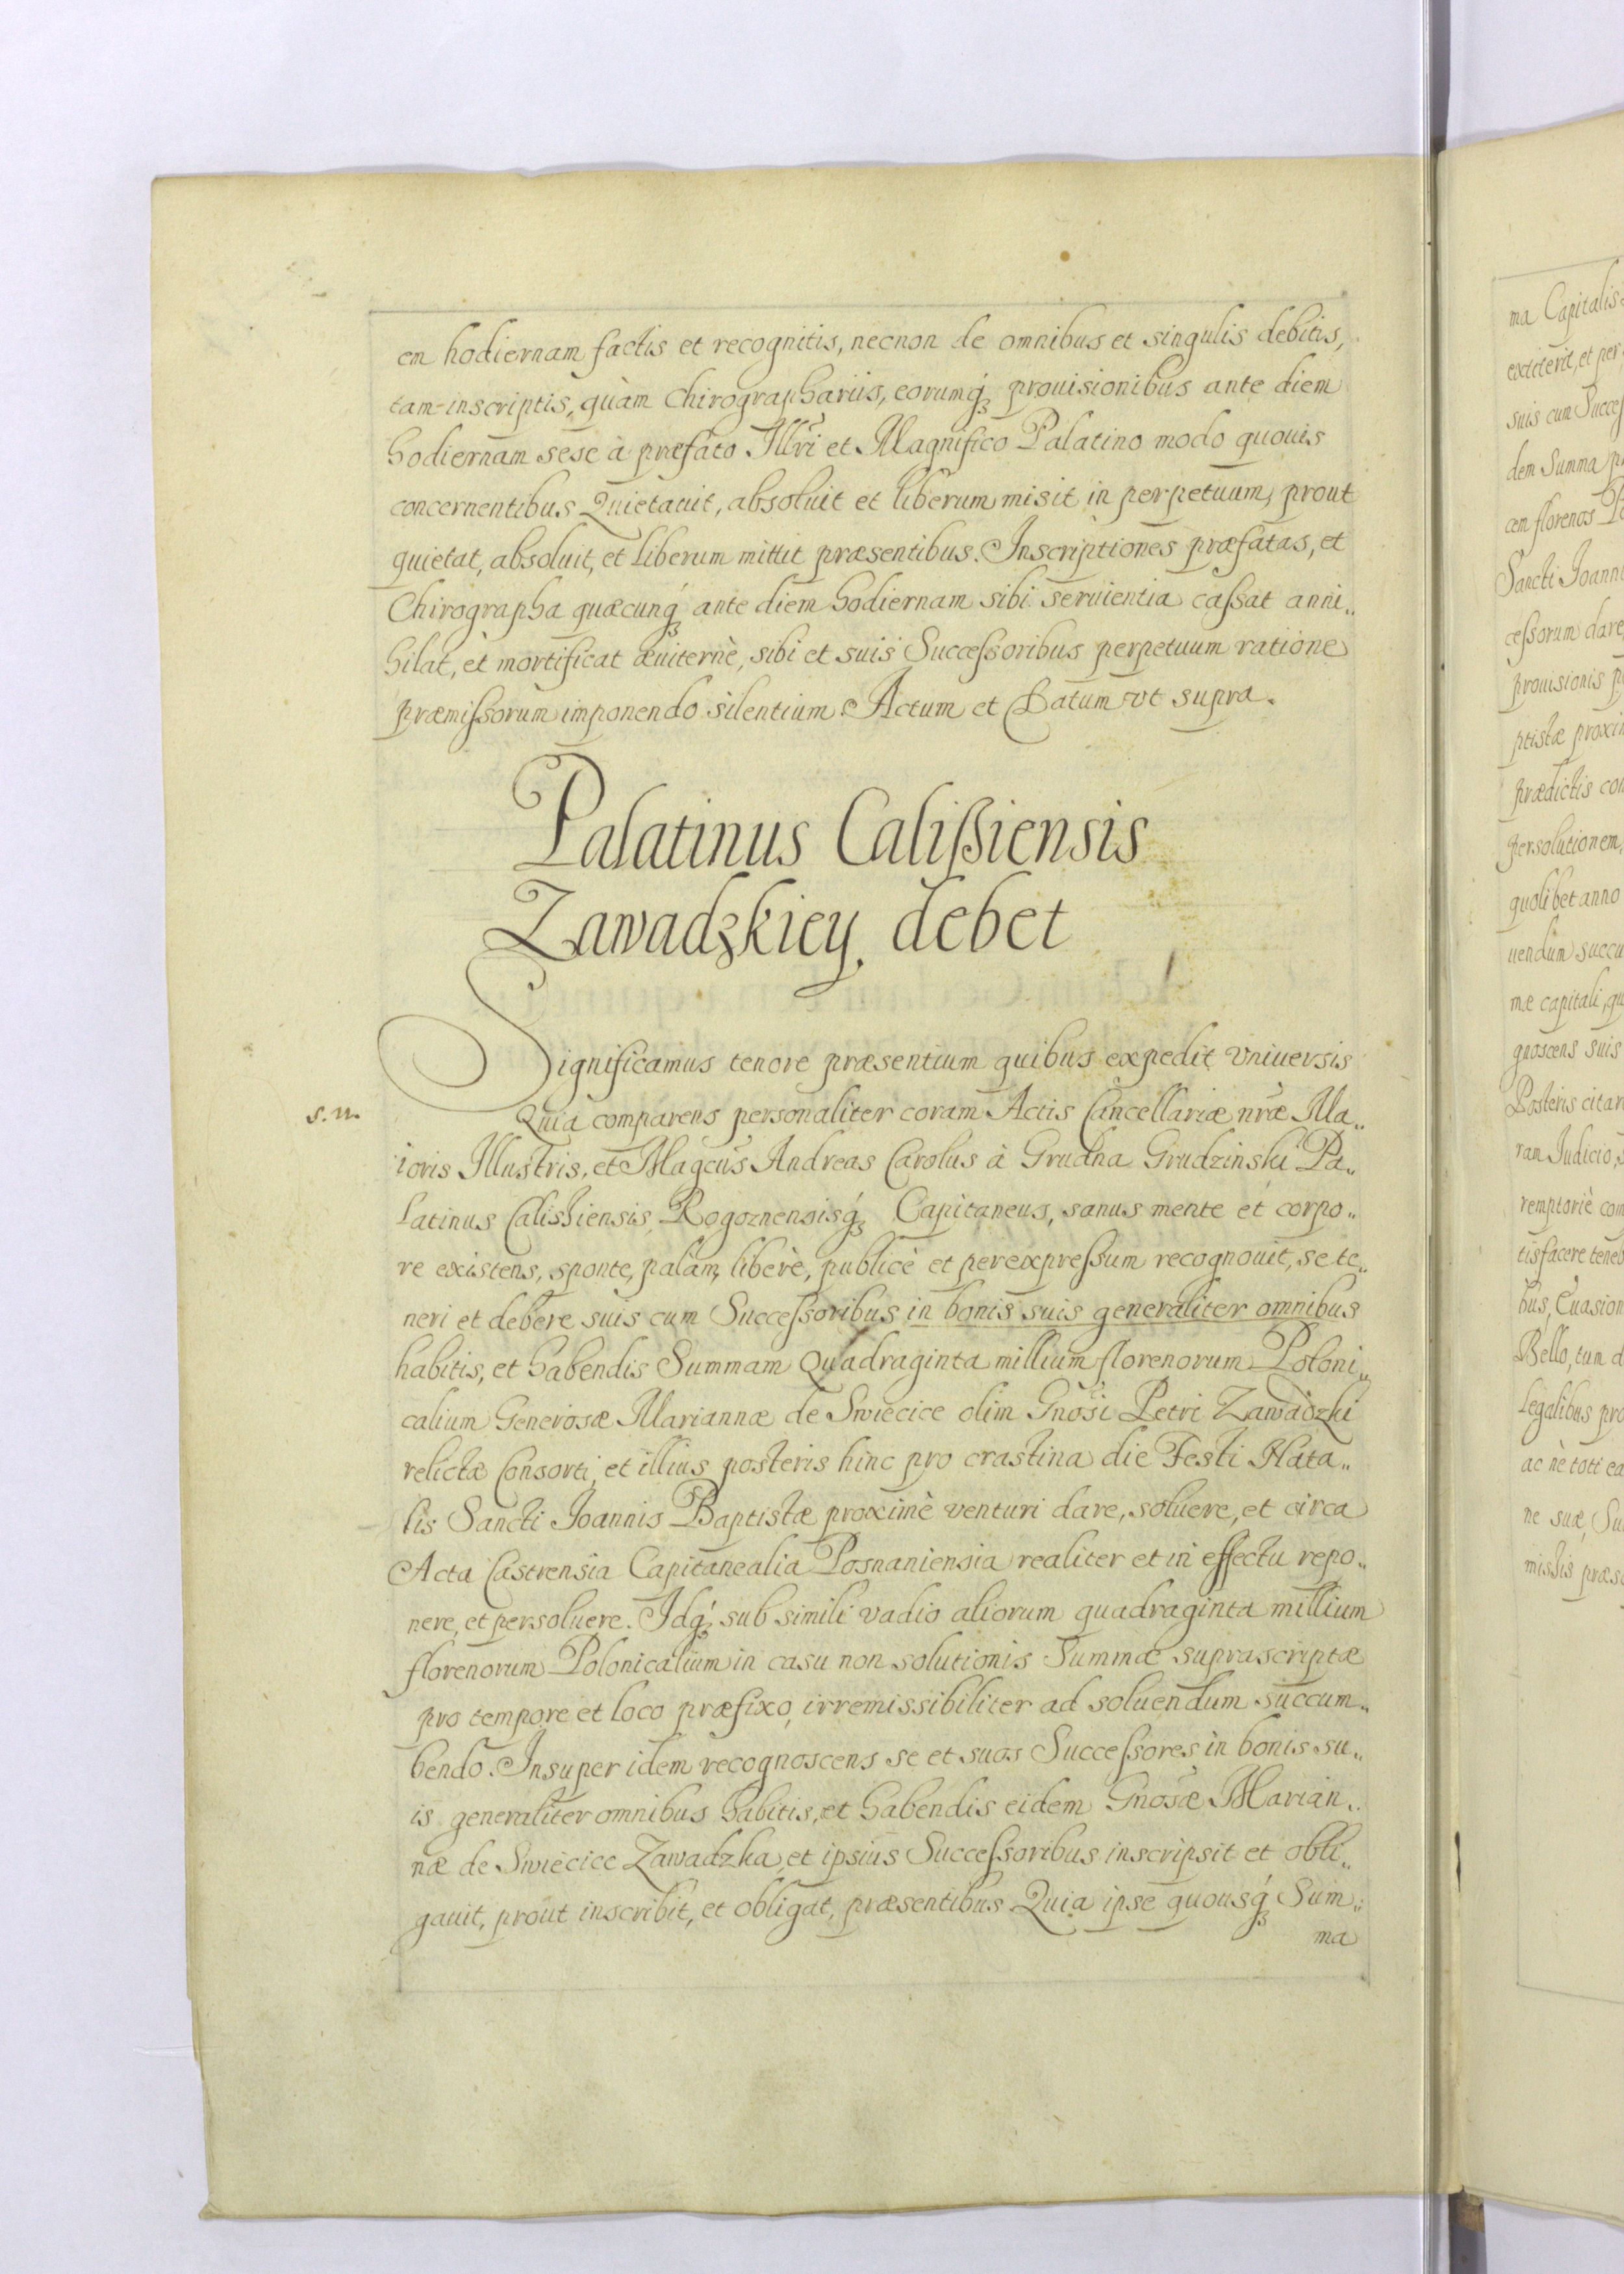 em hodiernam factis et recognitis, necnon de omnibus et singulis debitis,
tam inscriptis, quàm Chirographariis, eorumq́ȝ prouisionibus ante diem
hodiernam sese à præfato Illri et Magnifico Palatino modo quouis
concernentibus Quietauit, absoluit et liberum misit in perpetuum, prout
quietat, absoluit, et liberum mittit præsentibus. Inscriptiones præfatas, et
Chirographa quæcunq́ȝ ante diem hodiernam sibi seruientia cassat anni„
hilat, et mortificat æuiternè, sibi et suis Successoribus perpetuum ratione
præmissorum imponendo silentium. Actum et Datum vt supra.
Palatinus Calißiensis
Zawadzkiey debet
Significamus tenore præsentium quibus expedit vniuersis
s. n.
Quia comparens personaliter coram Actis Cancellariæ nræ Ma„
ioris Illustris, et Magcus Andreas Carolus à Grudna Grudzinski Pa„
latinus Calissiensis, Rogoznensisq́ȝ Capitaneus, sanus mente et corpo„
re existens, sponte, palam, liberè, publicè et per expressum recognouit, se te„
neri et debere suis cum Successoribus in bonis suis generaliter omnibus
habitis, et habendis Summam Quadraginta millium florenorum Poloni„
calium Generosæ Mariannæ de Swiecice olim Gnosi Petri Zawadzki
relictæ Consorti, et illius posteris hinc pro crastina die Festi Nata„
lis Sancti Joannis Baptistæ proximè venturi dare, soluere, et circa
Acta Castrensia Capitanealia Posnaniensia realiter et in effectu repo„
nere, et persoluere. Idq́ȝ sub simili vadio aliorum quadraginta millium
florenorum Polonicalium in casu non solutionis Summæ suprascriptæ
pro tempore et loco præfixo, irremissibiliter ad soluendum succum„
bendo. Insuper idem recognoscens se et suos Successores in bonis su„
is generaliter omnibus habitis, et habendis eidem Gnosæ Marian„
næ de Swiecice Zawadzka, et ipsius Successoribus inscripsit et obli„
gauit, prout inscribit, et obligat, præsentibus Quia ipse quousq́ȝ Sum„
ma
ma Capitalis
et per
suis cum Succes
dem Summa
cem florenos
Sancti Joanni
cessorum dare
prouisionis
ptistæ proxim
prædictis con
persolutionem,
quolibet anno
uendum succu
mæ capitali, qu
gnoscens suis
Posteris citar
ram Judicio,
remptoriè com
tisfacere teneb
bus, Euasion
Bello, tum d
Legalibus pro
ac nè toti ea
ne suæ, Su
missis præse